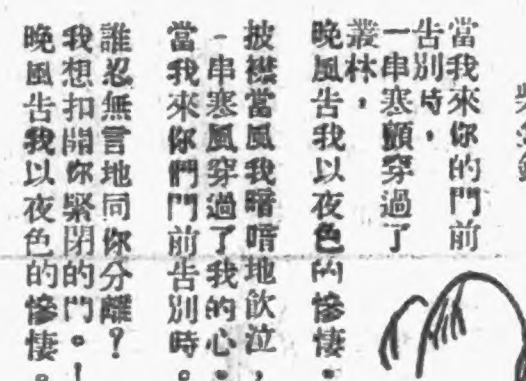 當我來你的門前
告別時，
一串寒顫穿過了
叢林，
晚風告我以夜色的慘悽。
披襟當風我暗暗地飲泣，
一串寒風穿過了我的心。
當我來你們門前告別時。
誰忍無言地同你分離？
我想扣開你緊閉的門。！
晚風告我以夜色的慘悽。